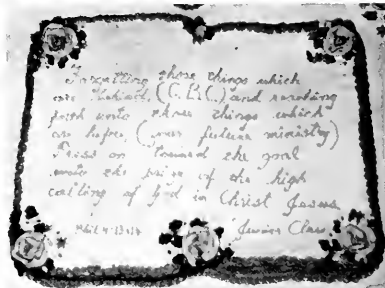 Forgetting those things which
are behind, (C.B.C.) and reaching
forth unto those things which
are before, (your future ministry)
Press on toward the goal
unto the prize of the high
calling of God in Christ Jesus.
Junior Class